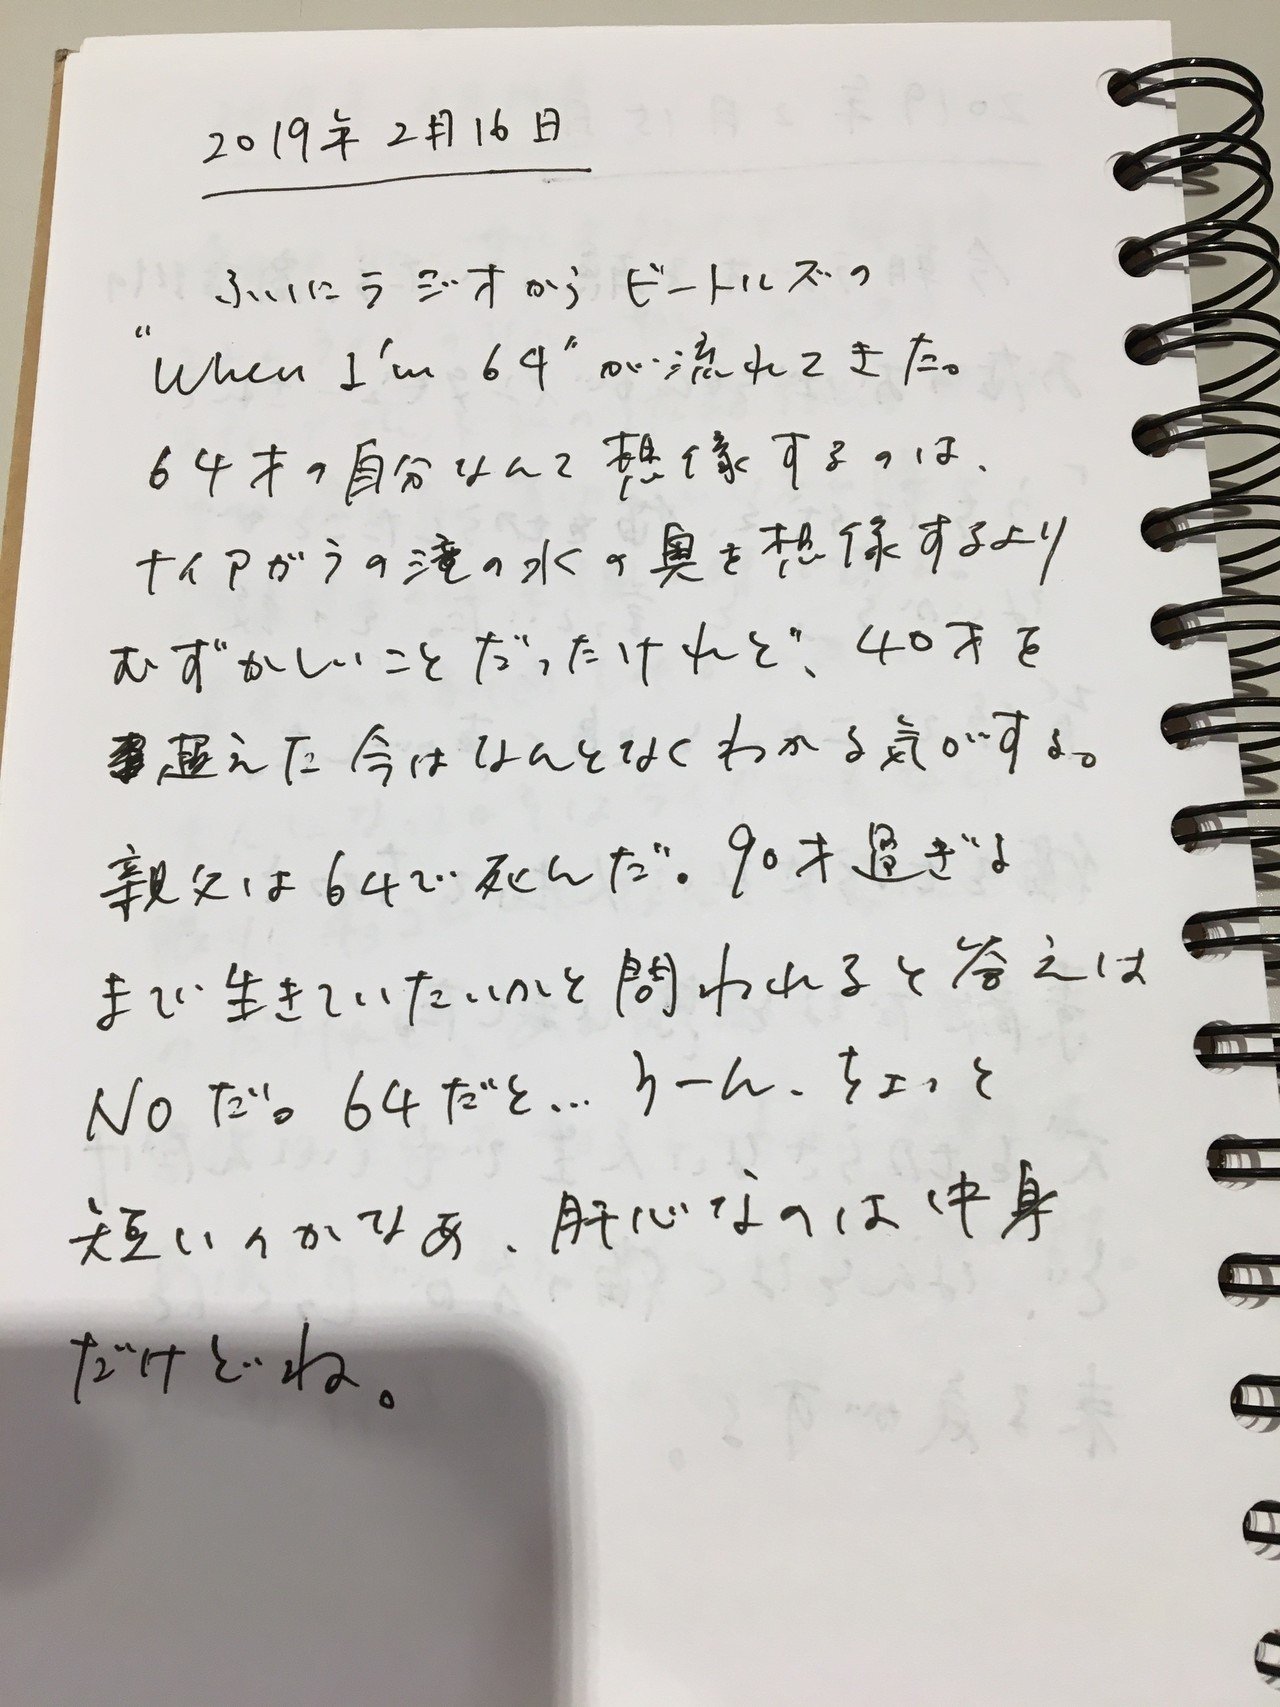 2019年2月16日
ふいにラジオからビートルズの
"When I'm 64"が流れてきた。
64才の自分なんて想像するのは、
ナイアガラの滝の水の奥を想像するより
むずかしいことだったけれど、40才を
超えた今はなんとなくわかる気がする。
親父は64で死んだ。90才過ぎ
まで生きていたいかと問われると答えは
NOだ。64だと…うーん、ちょっと
短いのかなぁ、肝心なのは中身
だけどね。